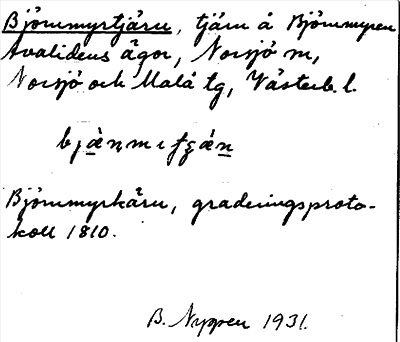 Björnmyrtjärn, tjärn å Björnmyren
Avalidens ägor, Norsjö sn,
Norsjö och Malå tg, Västerb. l.
Björnmyrkärn, graderingsproto-
koll 1810.
B. Nyppen 1931.